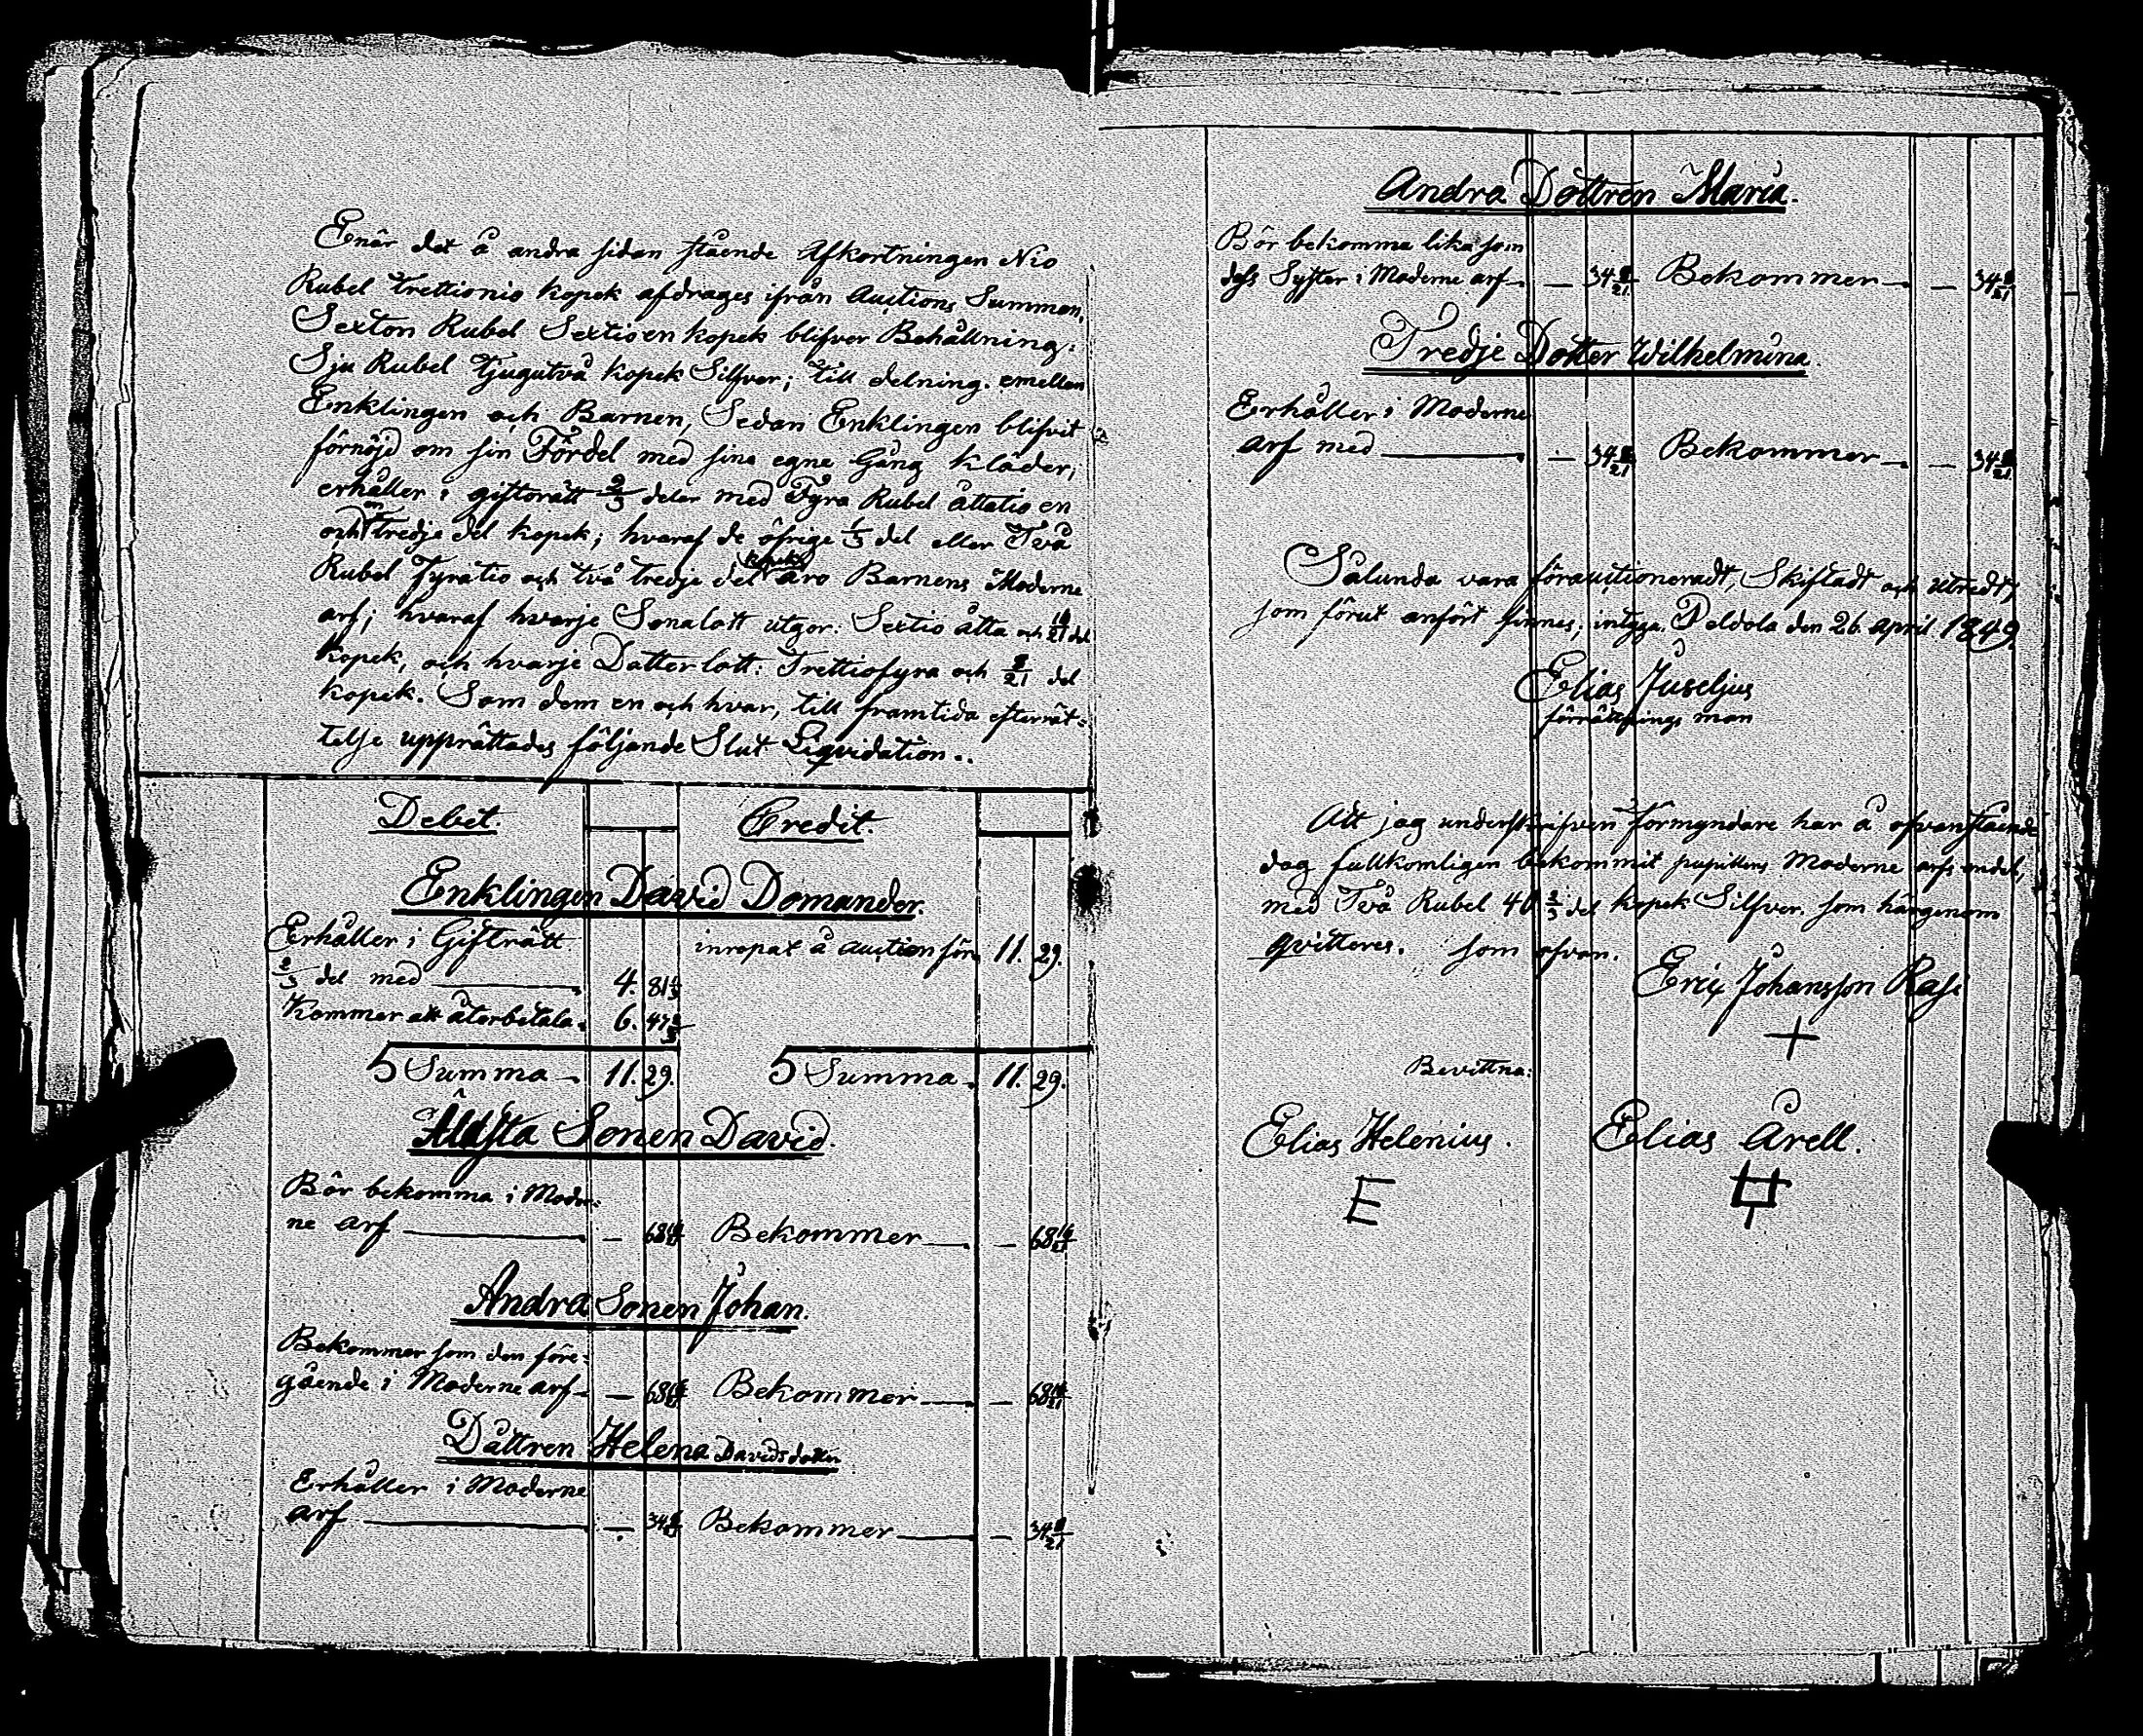 Enär det å andra sidan stående Afkortningen Nio
Rubel trettionio kopek afdrages ifrån Auctions Summan,
Sexton Rubel Sextioen kopek blifver Behållning:
Sju Rubel tjugutvå kopek Silfver; till delning. emellan
Enklingen och Barnen, Sedan Enklingen blifvit
förnöjd om sin Fördel med sina egne Gång kläder;
erhåller i giftorätt 2/3 delar med Fyra Rubel åttatio en
och en tredje del kopek; hvaraf de öfrige 1/3 del eller Två
Rubel Fyratio och två tredje del kopek äro Barnens Moderne
arf; hvaraf hvarje Sonalott utgör: Sextio åtta och 16/21 del
kopek, och hvarje Dotter lott: Trettiofyra och 8/21 del
kopek. Som dem en och hvar, till framtida efterrät=
telse upprättades följande Slut Liqvidation..
Debet. Credit.
Enklingen David Domander.
Erhåller i Gifträtt inropat å auction för 11. 29.
2/3 del med 4. 81 1/3
Kommer att återbetala. 6. 47 2/3
S Summa 11. 29. S Summa. 11. 29.
Äldsta Sonen David.
Bör bekomma i Moder=
ne arf — 68 16/21 Bekommer — 68 16/21
Andra Sonen Johan.
Bekommer som den före=
gående i Moderne arf — 68 16/21 Bekommer — 68 16/21
Dåttren Helena Davidsdotter
Erhåller i Moderne
arf — 34 8/21 Bekommer — 34 8/21
Andra Dottren Maria.
Bör bekomma lika som
dess Syster i Moderne arf — 34 8/21 Bekommer — 34 8/21
Tredje Dotter Wilhelmina.
Erhåller i Moderne
arf med — 34 8/21 Bekommer — 34 8/21
Sålunda vara förauctioneradt, Skiftadt och utredt,
som förut anfört finnes; intyga. Peldola den 26. April 1849.
Elias Juseljus
förrättnings man
Att jag underskrifven förmyndare har å ofvanstående
dag fullkomligen bekommit pupillens Moderne arfs andel,
med Två Rubel 40 2/3 del kopek Silfver. som härgenom
qvitteres. som ofvan.
Eric Johansson Rasi
+
Bevittna:
Elias Helenius. Elias Arell.
E